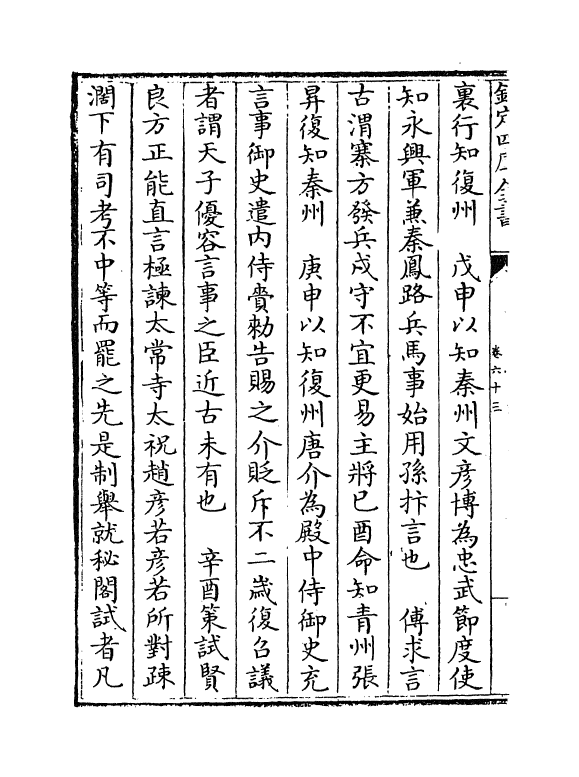 欽定四庫全書
卷六十三
裏行知復州　戊申以知秦州文彦博為忠武節度使
知永興軍兼秦鳳路兵馬事始用孫抃言也　傅求言
古渭寨方發兵戍守不宜更易主將已酉命知青州張
昇復知秦州　庚申以知復州唐介為殿中侍御史充
言事御史遣内侍賫勅告賜之介貶斥不二嵗復召議
者謂天子優容言事之臣近古未有也　辛酉策試賢
良方正能直言極諫太常寺太祝趙彦若彦若所對疎
濶下有司考不中等而罷之先是制舉就秘閣試者凡